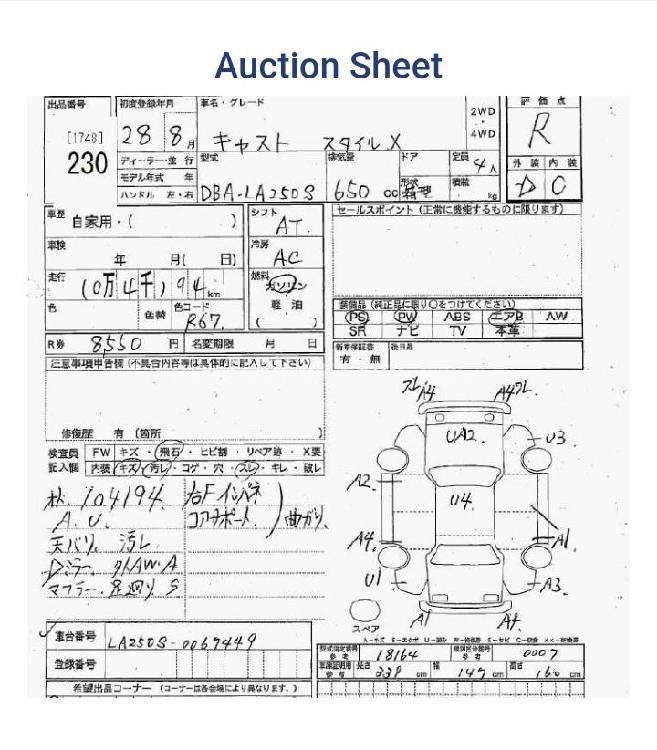 Auction Sheet
出品番号 初度登録年月 車名・グレード 2WD 評価点
[1748] 28 8月 キャスト スタイルX ・ 4WD R
230 ディーラー・並行 型式 排気量 ドア 定員 4人 外装 内装
モデル年式 年 形状 箱型 積載 kg D C
ハンドル 左・右 DBA-LA250S 650 cc
車歴 自家用・( ) シフト AT セールスポイント (正常に機能するものに限ります)
車検 年 月( 日) 冷房 AC
走行 10万4千194 km 燃料 ガソリン
軽油
( )
色 色替 色コード R67 装備品 (純正品に限り○をつけてください)
PS PW ABS エアB AW
SR ナビ TV 本革
R券 8550 円 名変期限 月 日 新車保証書 有・無
注意事項申告欄 (不具合内容等は具体的に記入して下さい)
修復歴 有 (箇所 )
検査員 FW キズ・飛石・ヒビ割・リペア跡・X要
記入欄 内装 キズ・汚レ・コゲ・穴・スレ・キレ・破レ
104194 右Fインパネ
A.U. コアサポート 曲ガリ
天バリ 汚レ
Dミラー AW・A
マフラー 足廻り S
スレ A4 A4スレ
UA2 U3
A2 U4
A4 A1
U1 A3
A1
スペア
車台番号 LA250S-0069449
登録番号
型式指定番号 参考 18164 類別区分番号 参考 0007
長さ 339 cm 幅 147 cm 高さ 160 cm
希望出品コーナー (コーナーは各会場により異なります。)